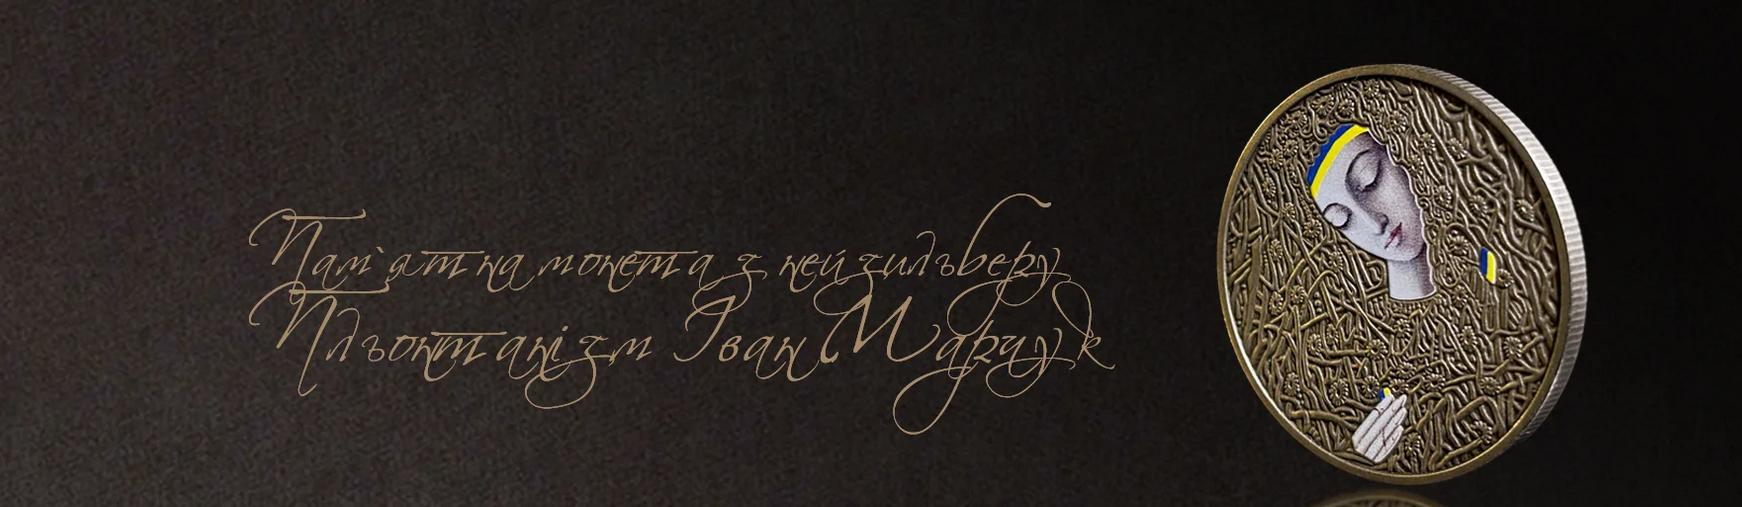 Пам`ятна монета з нейзильберу
Пльонтанізм Іван Марчук